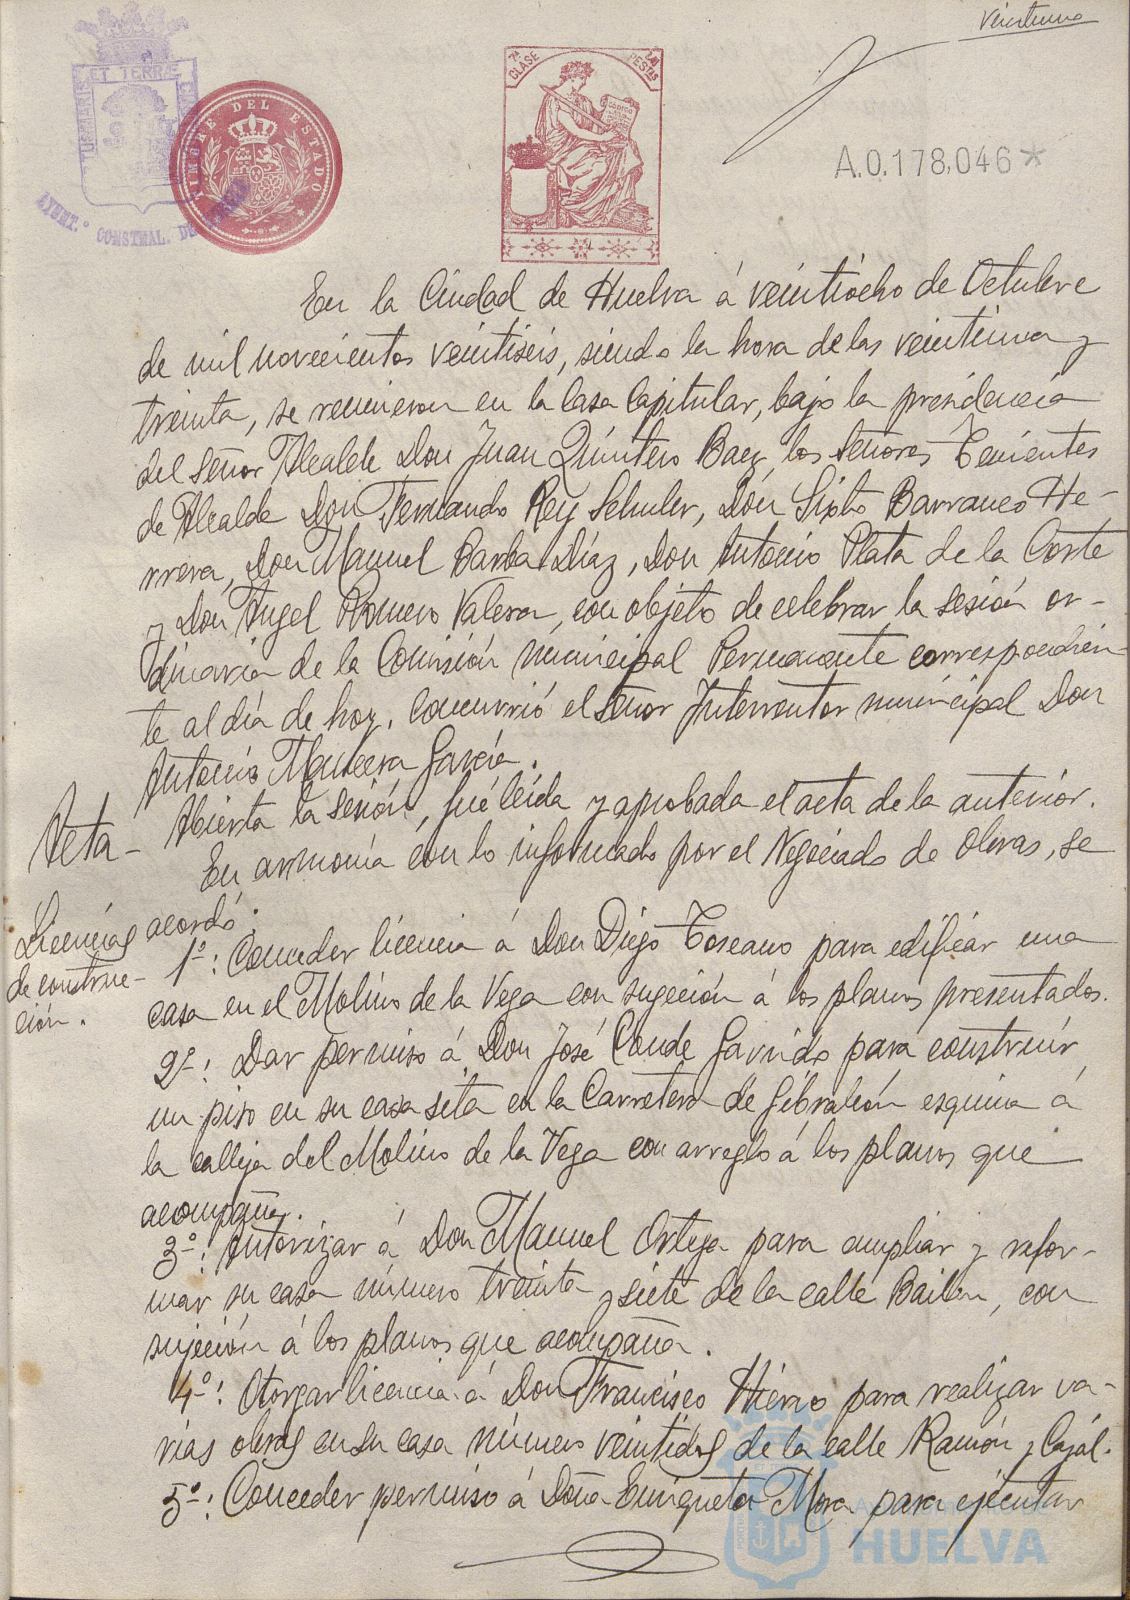 veintiuno
PORTUS MARIS ET TERRÆ CUSTODIA
AYUNT.º CONSTNAL. DE HUELVA
TIMBRE DEL ESTADO
7ª CLASE
PESTAS
CODIGO
A.0.178,046*
En la Ciudad de Huelva á veintiocho de Octubre
de mil novecientos veintiséis, siendo la hora de las veintiuna y
treinta, se reunieron en la Casa Capitular, bajo la presidencia
del señor Alcalde Don Juan Quintero Baez, los señores Tenientes
de Alcalde Don Fernando Rey Schuler, Don Sixto Barranco He-
rrera, Don Manuel Barba Díaz, Don Antonio Plata de la Corte
y Don Ángel Romero Valera, con objeto de celebrar la sesión or-
dinaria de la Comisión municipal Permanente correspondien-
te al día de hoy. Concurrió el señor Interventor municipal Don
Antonio Mancera García.
Acta- Abierta la sesión, fué leída y aprobada el acta de la anterior.
En armonía con lo informado por el Negociado de Obras, se
acordó:
Licencias
de construc-
ción.
1º: Conceder licencia á Don Diego Toscano para edificar una
casa en el Molino de la Vega con sugeción á los planos presentados.
2º: Dar permiso á Don José Conde Garrido para construir
un piso en su casa sita en la Carretera de Gibraleón esquina á
la calleja del Molino de la Vega con arreglo á los planos que
acompaña.
3º: Autorizar á Don Manuel Ortega para ampliar y refor-
mar su casa número treinta y siete de la calle Bailén, con
sujeción á los planos que acompaña.
4º: Otorgar licencia á Don Francisco Hierro para realizar va-
rias obras en su casa número veintidós de la calle Ramón y Cajal.
5º: Conceder permiso á Doña Enriqueta Mora para ejecutar
AYUNTAMIENTO DE
HUELVA